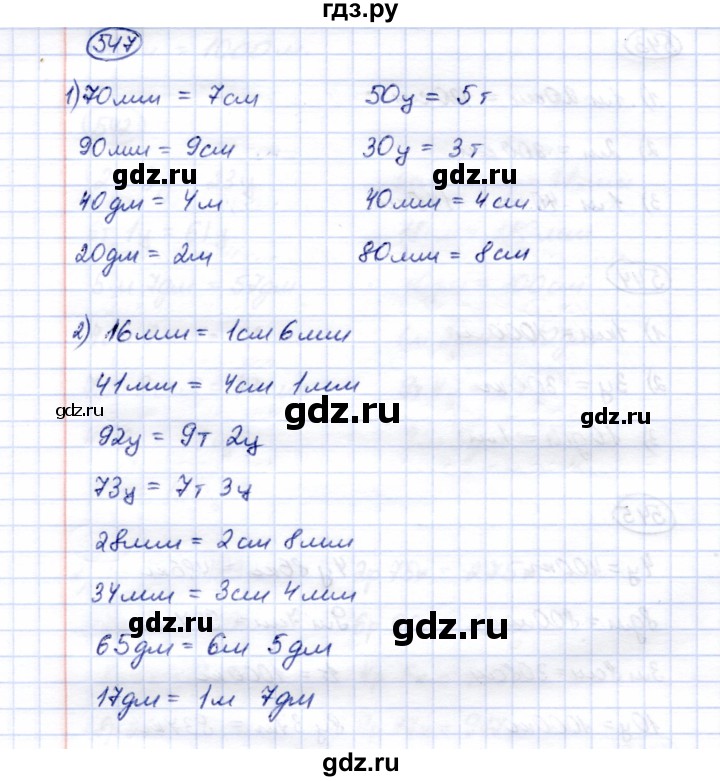 гдз.ру
547
1) 70мм = 7см 50ц = 5т
90мм = 9см 30ц = 3т
gdz.ru gdz.ru
40дм = 4м 40мм = 4см
20дм = 2м 80мм = 8см
2) 16мм = 1см 6мм
41мм = 4см 1мм
gdz.ru gdz.ru gdz.ru
92ц = 9т 2ц
73ц = 7т 3ц
28мм = 2см 8мм
34мм = 3см 4мм
gdz.ru gdz.ru
65дм = 6м 5дм
17дм = 1м 7дм
gdz.ru